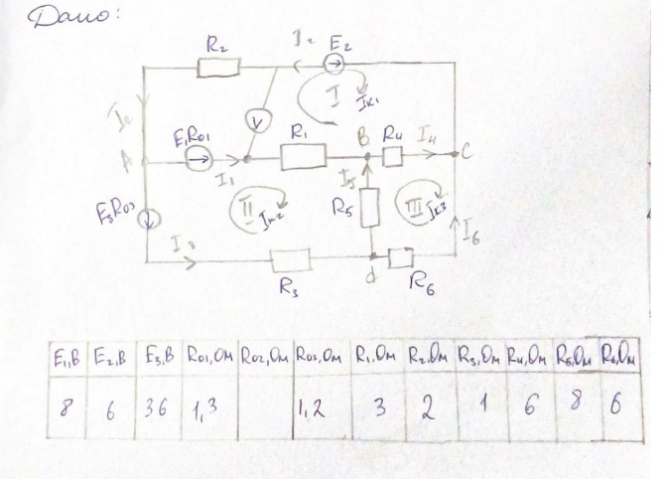 Дано:
R₂ I₂ E₂
I₂ I Iк₁
V
A E₁R₀₁ R₁ B R₄ I₄ C
I₁ I₅
E₃R₀₃ II Iк₂ R₅ III Iк₃
I₃ I₆
R₃ d R₆
E₁,В E₂,В E₃,В R₀₁,Ом R₀₂,Ом R₀₃,Ом R₁,Ом R₂,Ом R₃,Ом R₄,Ом R₅,Ом R₆,Ом
8 6 36 1,3 1,2 3 2 1 6 8 6